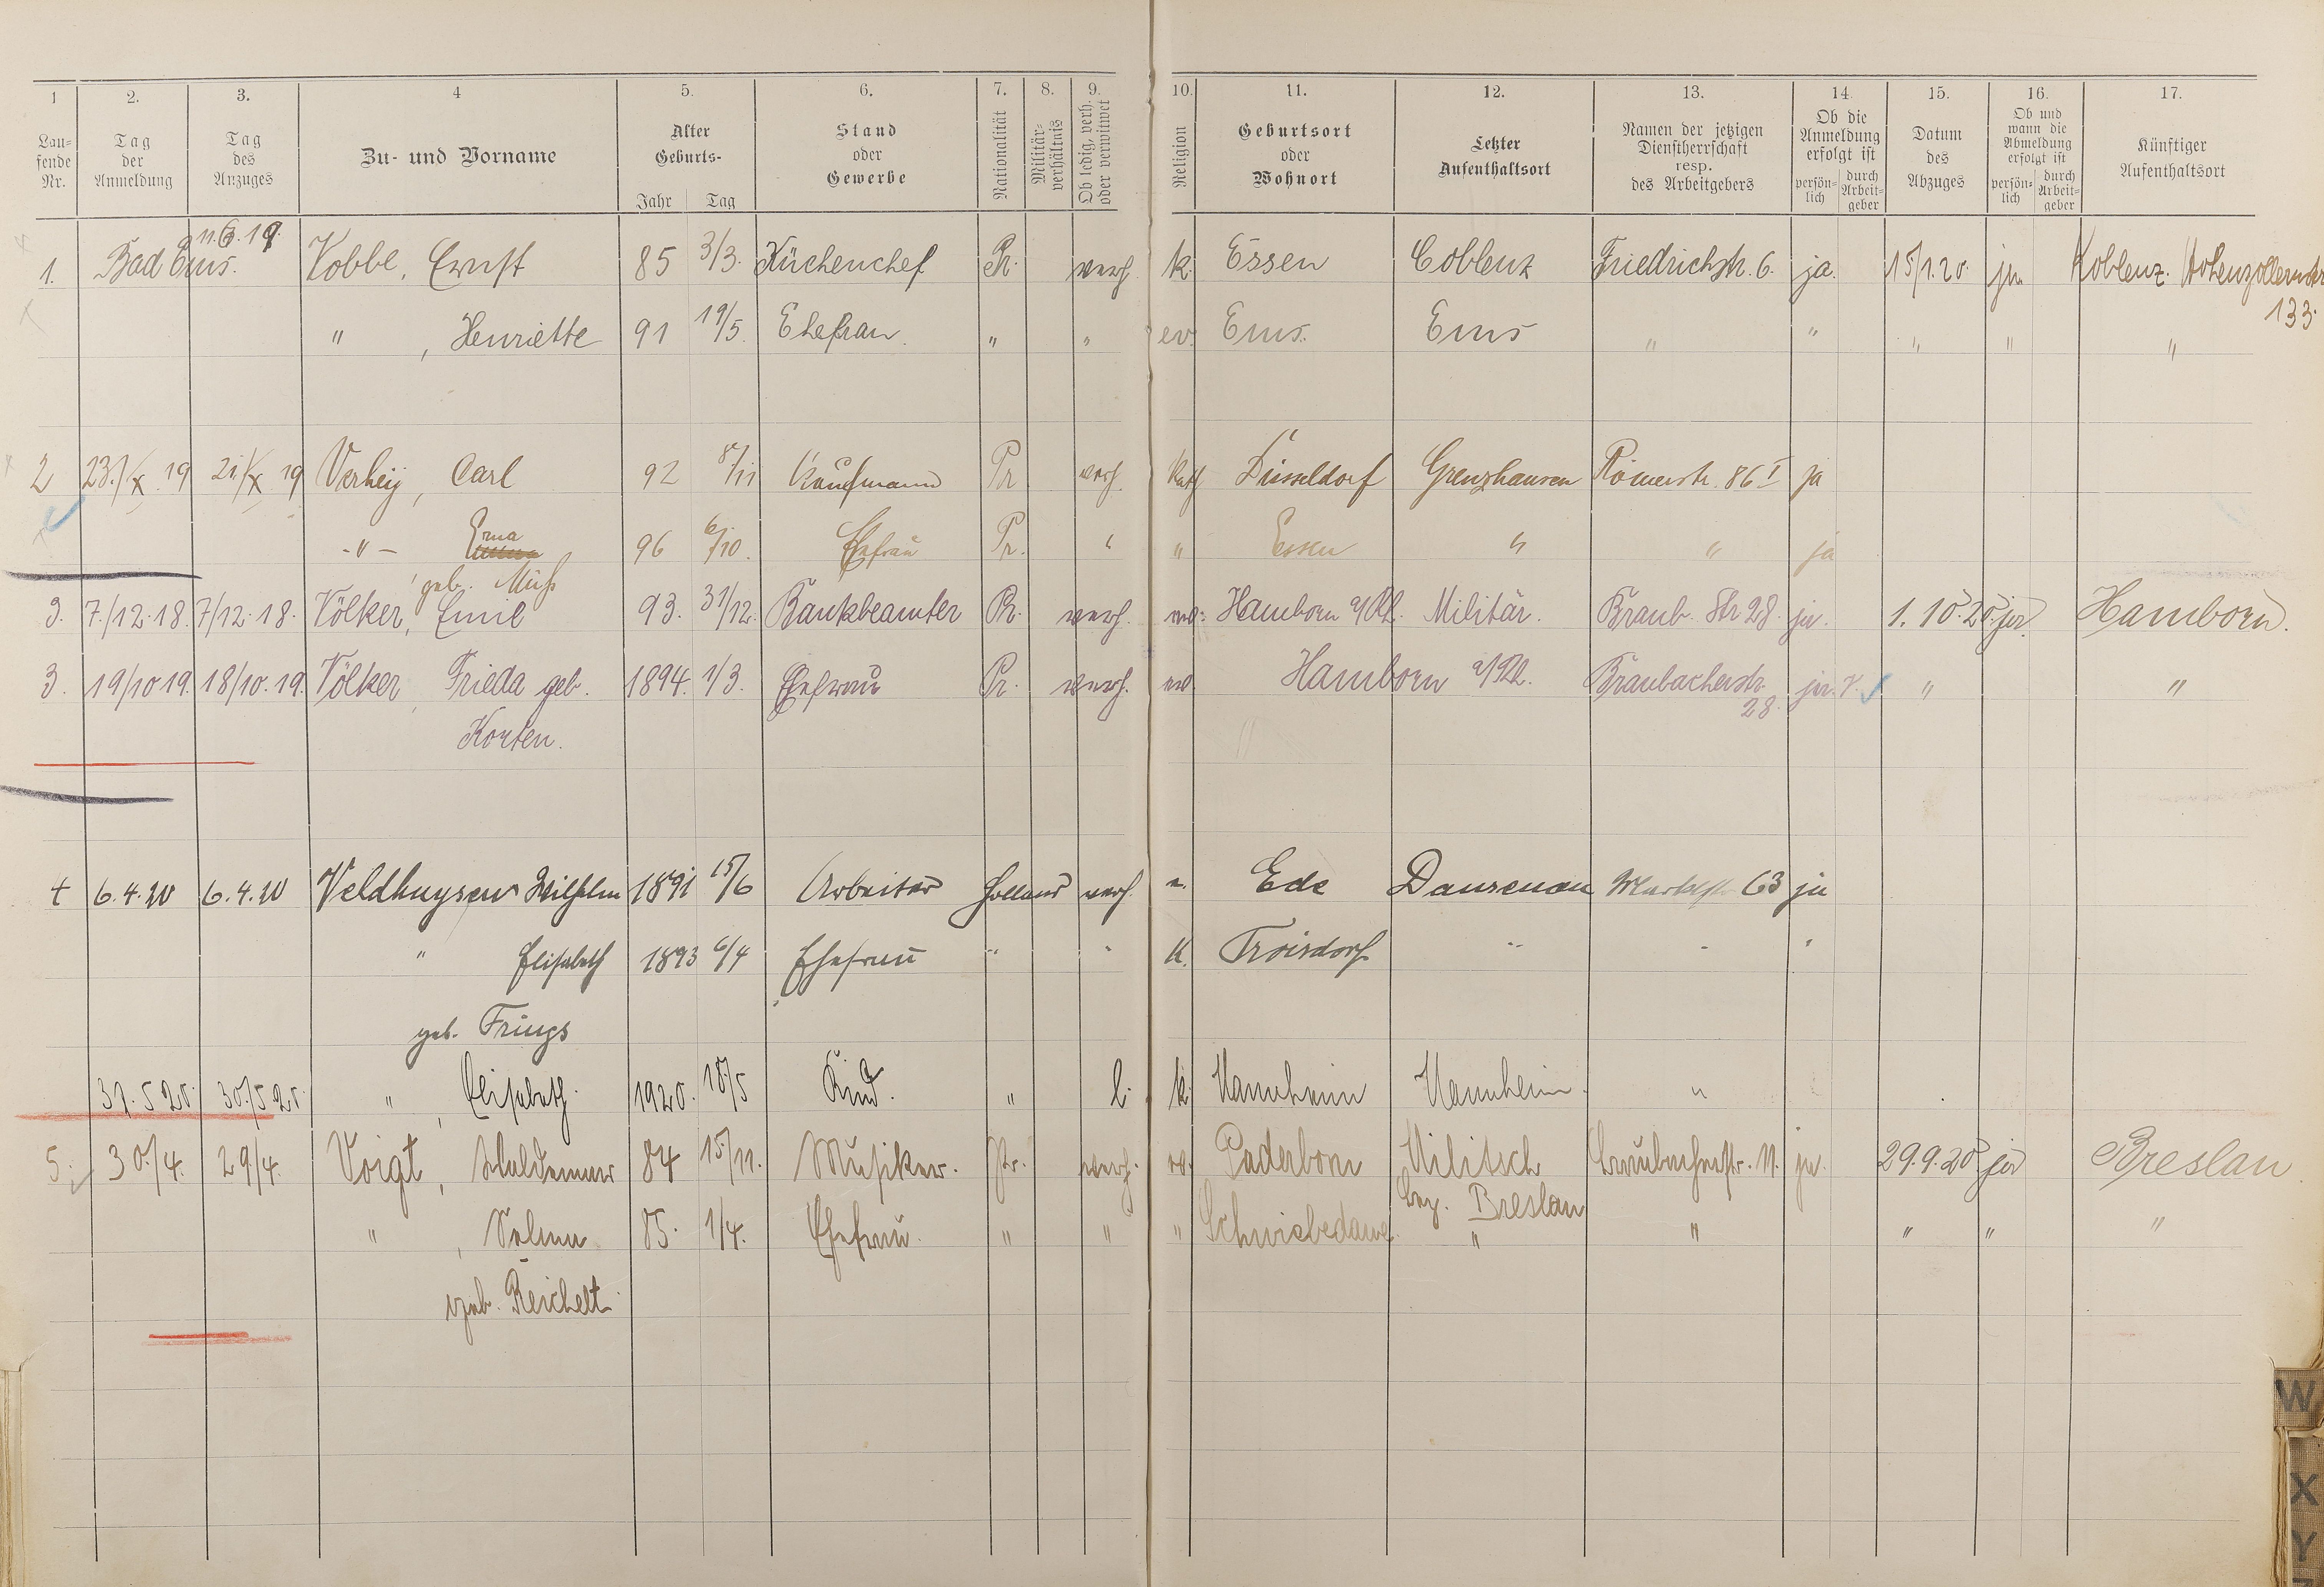 1 2. 3. 4 5. 6. 7. 8. 9. 10. 11. 12. 13. 14. 15. 16. 17.
Lau-
fende
Nr.
Tag
der
Anmeldung
Tag
des
Anzuges
Zu- und Vorname
Alter
Geburts-
Jahr Tag
Stand
oder
Gewerbe
Nationalität
Militär-
verhältnis
Ob ledig, verh.
oder verwitwet
Religion
Geburtsort
oder
Wohnort
Letzter
Aufenthaltsort
Namen der jetzigen
Dienstherrschaft
resp.
des Arbeitgebers
Ob die
Anmeldung
erfolgt ist
persön-
lich
durch
Arbeit-
geber
Datum
des
Abzuges
Ob und
wann die
Abmeldung
erfolgt ist
persön-
lich
durch
Arbeit-
geber
Künftiger
Aufenthaltsort
11.6.19.
1. Bad Ems. Kobbe, Ernst 85 3/3. Küchenchef Pr. verh. k. Essen Coblenz Friedrichstr. 6. ja. 15/1.20. ja Koblenz. Hohenzollernstr
133.
" , Henriette 91 19/5. Ehefrau. " " ev. Ems. Ems " " " " "
2 23./X 19 21./X 19 Verheij, Carl 92 8/11 Kaufmann Pr verh. kath Düsseldorf Grenzhausen Römerstr. 86 I ja
-"- Erna 96 6/10. Ehefrau Pr. " " Essen " " ja
geb. Muß
3. 7/12.18. 7/12.18. Völker, Emil 93. 31/12. Bankbeamter Pr. verh. ev. Hamborn a/Rh. Militär. Braub. Str 28. ja. 1.10.20. ja. Hamborn.
3. 19/10 19. 18/10.19. Völker, Frieda geb. 1894. 1/3. Ehefrau Pr. verh. ev. Hamborn a/Rh. Braubacherstr. ja. " "
28.
Korten.
4 6.4.20 6.4.20 Veldhuysen Wilhelm 1891 15/6 Arbeiter Holland verh. e. Ede Dausenau 63 ja
" Elisabeth 1893 6/4 Ehefrau " " k. Troisdorf " " "
geb. Frings
31.5 20. 30./5 20. " , Elisabeth. 1920. 18/5 Kind. " l. k. Mannheim Mannheim. "
5. 30./4. 29/4. Voigt, Waldemar 84 15/11. Musiker. Pr. verh. ev. Paderborn Militsch Braubacherstr. 11. ja. 29.9.20. ja Breslau
Bez. Breslau
" , Selma 85. 1/4. Ehefrau. " " " Schwiebedawe. " " " " "
geb. Reichelt.
W
X
Y